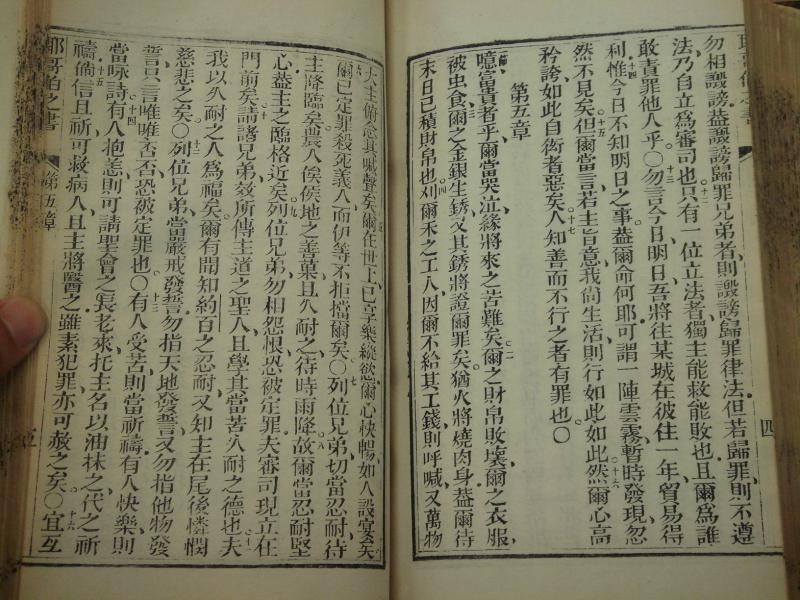 勿相譭謗蓋譭謗歸罪兄弟者則譭謗歸罪律法但若歸罪則不遵
法乃自立為審司也只有一位立法者獨主能救能敗也且爾為誰
十二
敢責罪他人乎〇勿言今日明日吾將往某城在彼住一年貿易得
十三
利惟今日不知明日之事蓋爾命何耶可謂一陣雲霧暫時發現忽
十四
然不見矣但爾當言若主旨意我尙生活則行如此如此然爾心高
十五
十六
矜誇如此自衒者惡矣人知善而不行之者有罪也〇
十七
第五章
噫富貴者乎爾當哭泣緣將來之苦難矣爾之財帛敗壞爾之衣服
一節
二
被虫食爾之金銀生銹又其銹將證爾罪矣猶火將燒肉身蓋爾待
三
末日已積財帛也刈爾禾之工人因爾不給其工錢則呼喊又萬物
四
四
大主俯念其喊聲矣爾在世上已享樂縱慾爾心快暢如人設宴矣
五
爾已定罪殺死義人而伊等不拒擋爾矣〇列位兄弟切當忍耐待
六
七
主降臨矣農人俟候地之善菓且久耐之待時雨降故爾當忍耐堅
八
心蓋主之臨格近矣列位兄弟勿相怨恨恐被定罪夫審司現立在
九
門前矣請諸兄弟效所傳主道之聖人且學其當苦久耐之德也夫
十
十一
我以久耐之人為福矣爾有聞知約百之忍耐又知主在尾後憐憫
慈悲之矣〇列位兄弟當嚴戒發誓勿指天地發誓又勿指他物發
十二
誓只言唯唯否否恐被定罪也〇有人受苦則當祈禱有人快樂則
十三
當咏詩有人抱恙則可請聖會之長老來托主名以油抹之代之祈
十四
禱倘信且祈可救病人且主將醫之雖素犯罪亦可赦之矣〇宜互
十五
十六
耶哥伯之書
第五章
五